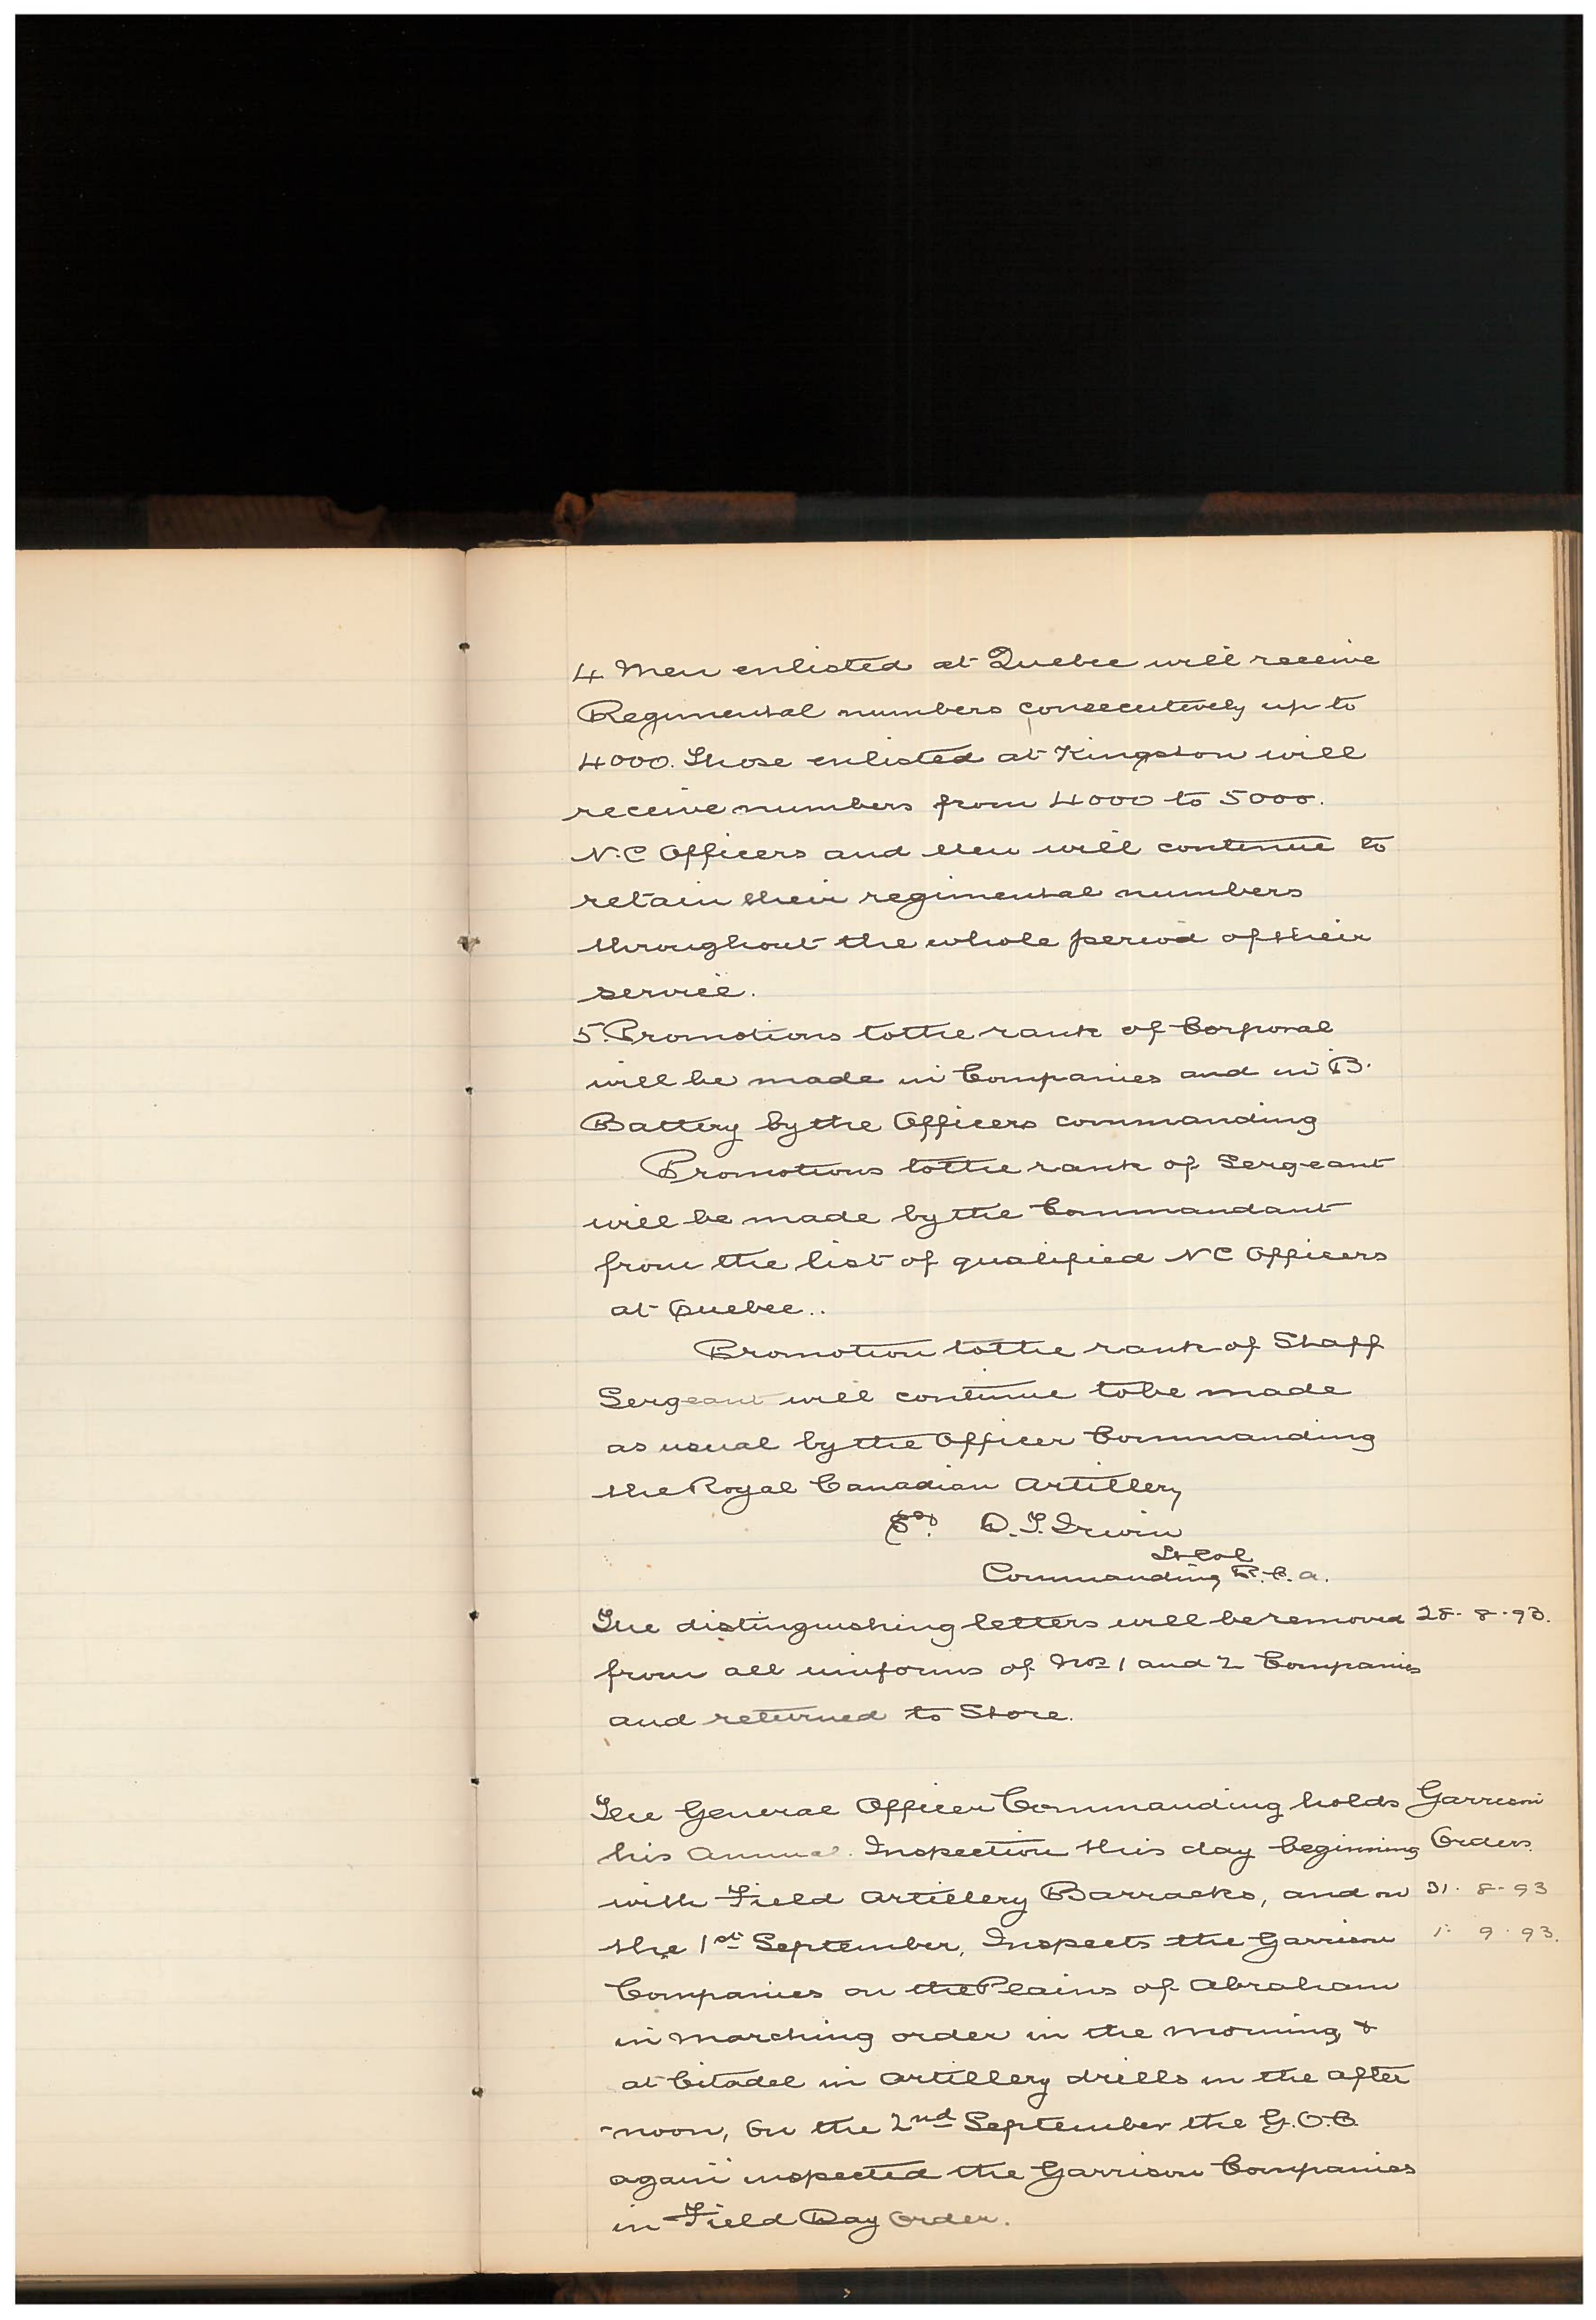 4 Men enlisted at Quebec will receive
Regimental numbers consecutively up to
4000. Those enlisted at Kingston will
receive numbers from 4000 to 5000.
N.C Officers and Men will continue to
retain their regimental numbers
throughout the whole period of their
service.
5. Promotions to the rank of Corporal
will be made in Companies and in B.
Battery by the Officers commanding
Promotions to the rank of Sergeant
will be made by the Commandant
from the list of qualified NC Officers
at Quebec..
Promotion to the rank of Staff
Sergeant will continue to be made
as usual by the Officer Commanding
the Royal Canadian Artillery
Sgd. D.T. Irwin
Lt Col
Commanding R.C.A.
The distinguishing letters will be removed 28-8-93.
from all uniforms of Nos 1 and 2 Companies
and returned to Store.
The General Officer Commanding holds Garrison
his Annual Inspection this day beginning Orders.
with Field Artillery Barracks, and on 31-8-93
the 1st September, Inspects the Garrison 1.9.93.
Companies on the Plains of Abraham
in marching order in the morning, &
at Citadel in Artillery drills in the after
-noon, On the 2nd September the G.O.C.
again inspected the Garrison Companies
in Field Day Order.